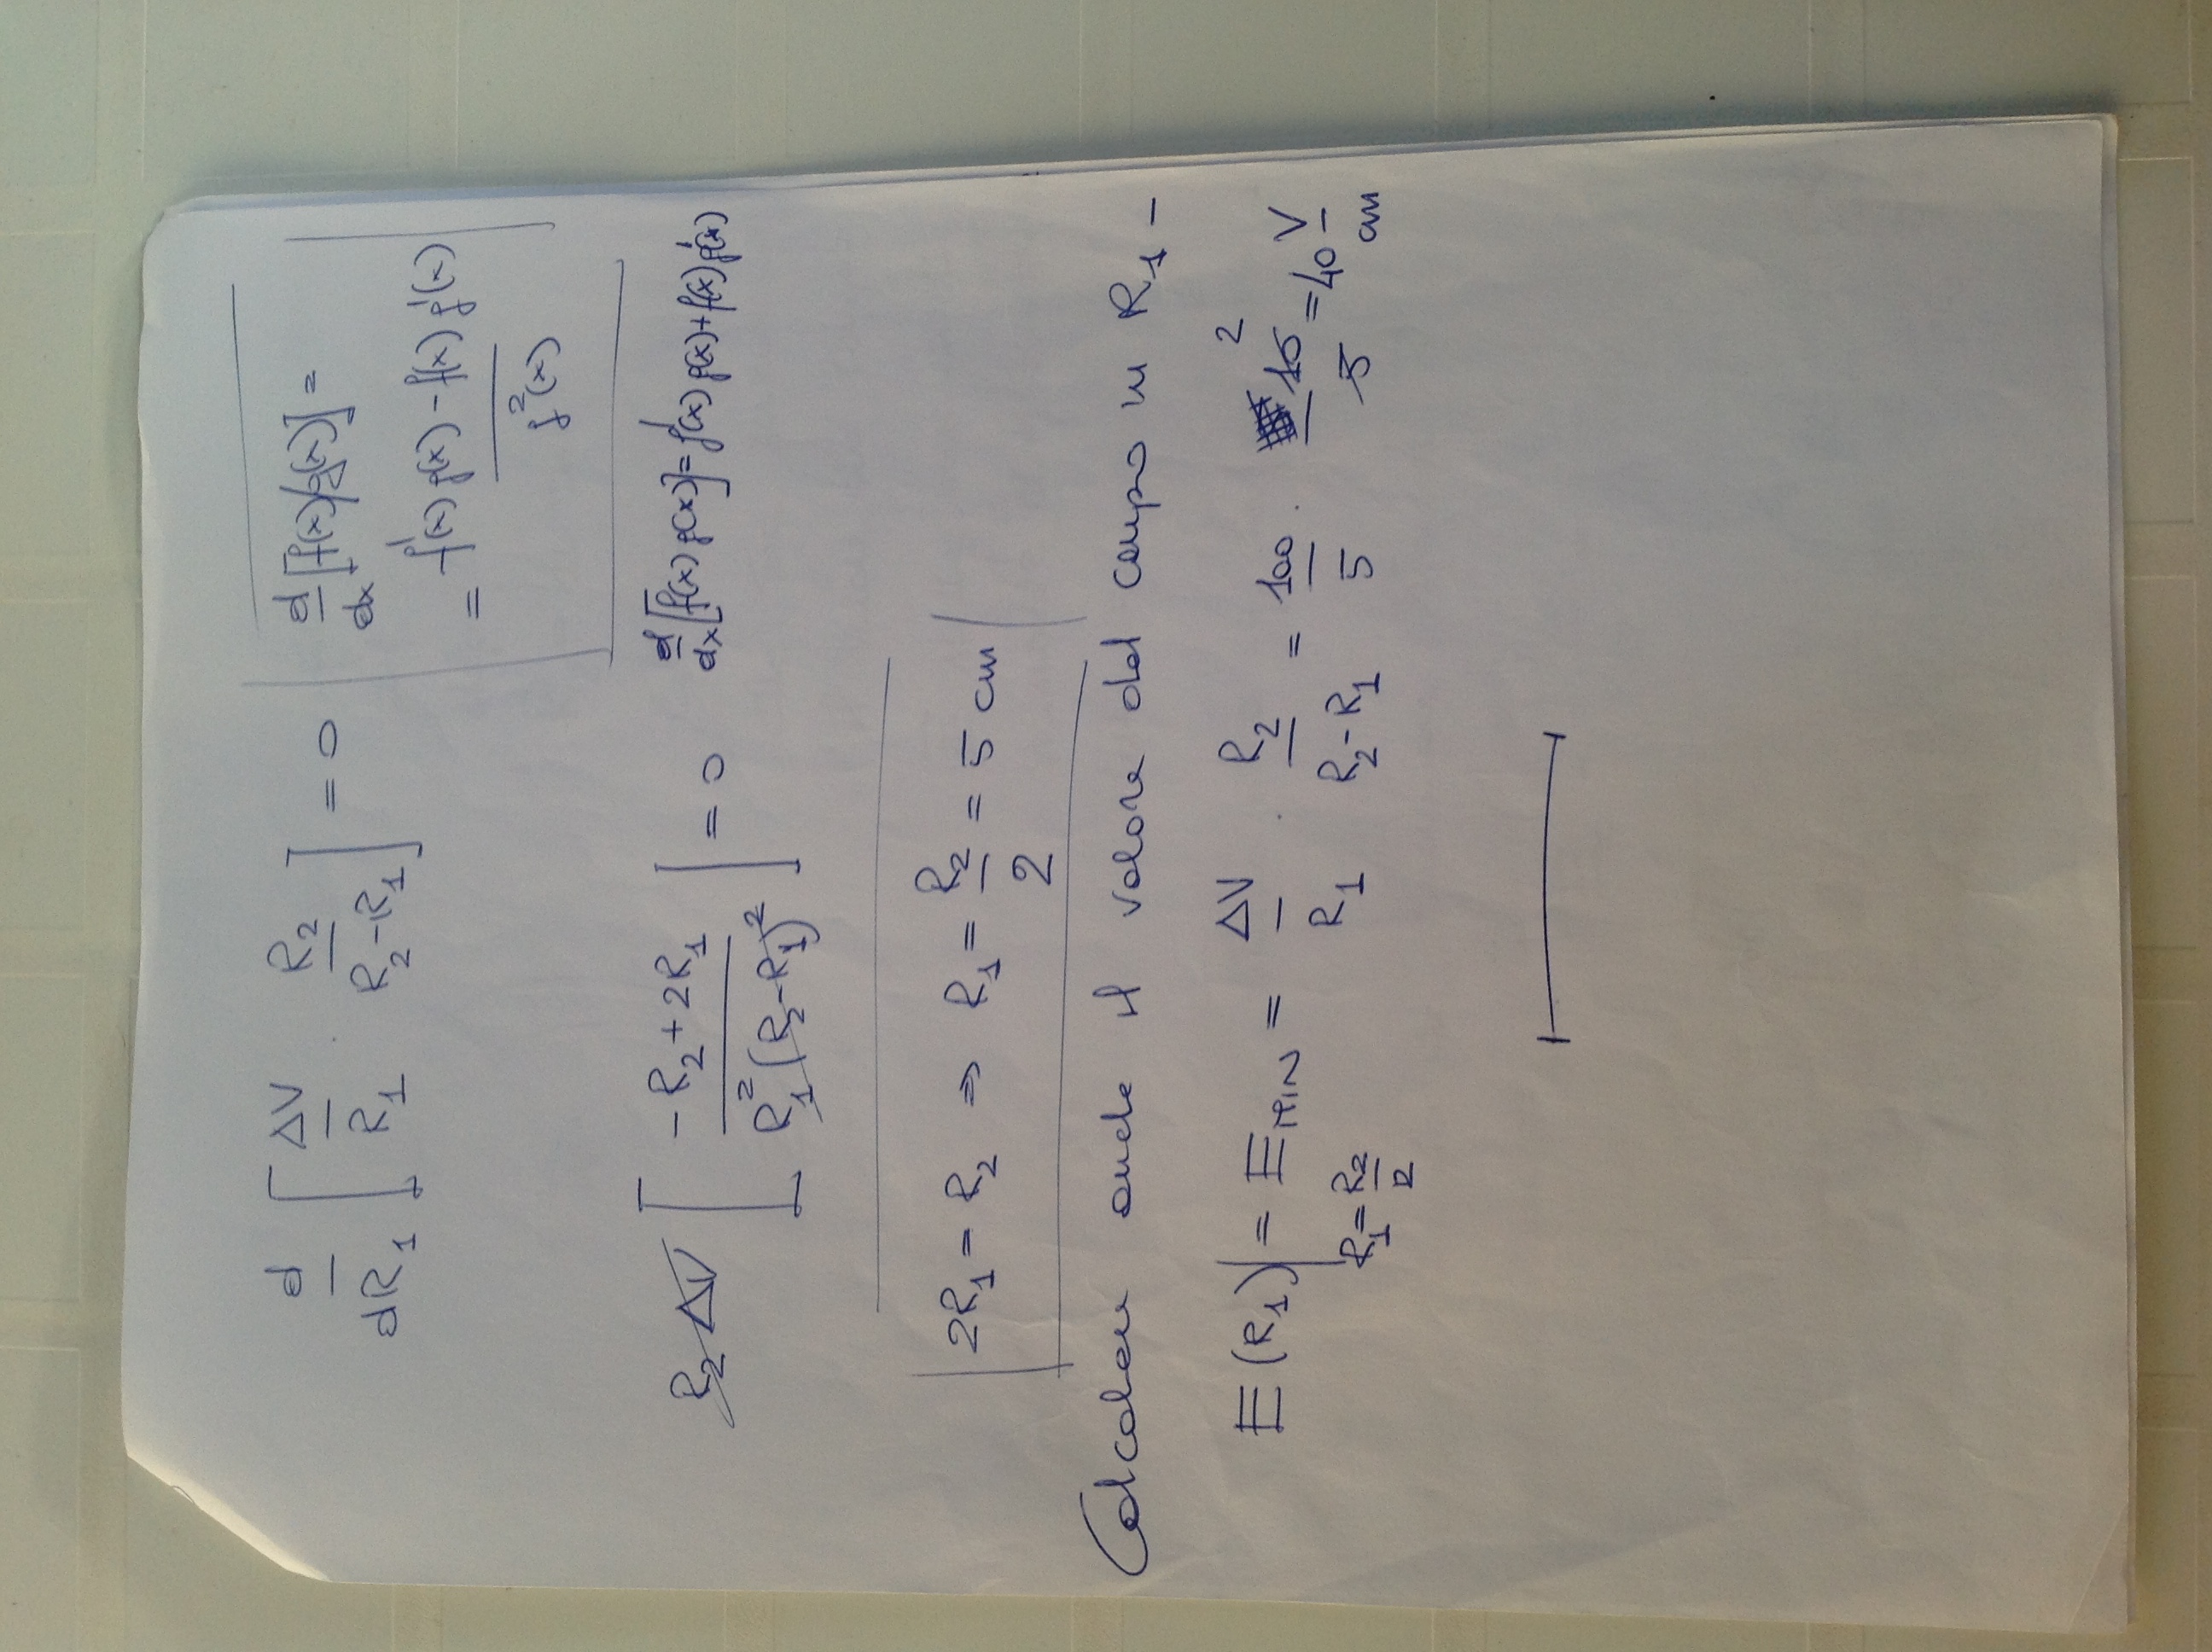 d/dR₁ [ΔV/R₁ · R₂/(R₂-R₁)] = 0
d/dx [f(x)/g(x)] =
= (f'(x) g(x) - f(x) g'(x)) / g²(x)
R₂ ΔV [(-R₂+2R₁) / (R₁²(R₂-R₁)²)] = 0
d/dx [f(x) g(x)] = f'(x) g(x) + f(x) g'(x)
2R₁ = R₂ ⇒ R₁ = R₂/2 = 5 cm
Calcolare anche il valore del campo in R₁ -
E(R₁)|R₁=R₂/2 = E_MIN = ΔV/R₁ · R₂/(R₂-R₁) = 100/5 · 10/5 2 = 40 V/cm